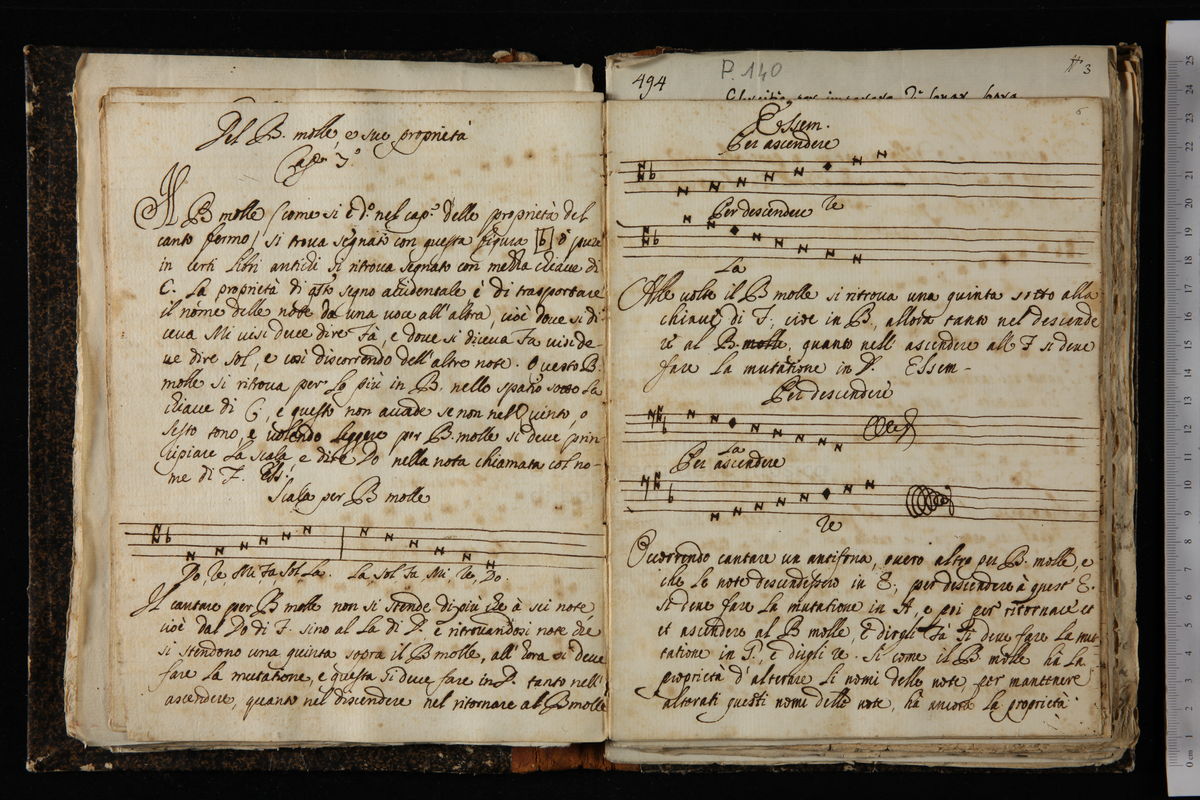 Del B. molle, e sue proprietà
Cap.º 3º
Il B molle (come si è dº nel cap.º delle proprietà del
canto fermo) si trova segnato con questa figura b ò pure
in certi libri antichi si ritrova segnato con mezza chiave di
C. La proprietà di qsto segno accidentale è di trasportare
il nome delle note da una voce all'altra, cioè dove si di-
ceva Mi vi si deve dire Fà, e dove si diceva Fa vi si de-
ve dire Sol, e così discorrendo dell'altre note. Questo B.
molle si ritrova per lo più in B. nello spatio sotto la
chiave di C, e questo non accade se non nel Quinto, o
sesto tono, e volendo leggere per B. molle si deve prin-
cipiare la scala, e dire Do nella nota chiamata col no-
me di F. Ess.
Scala per B molle
Do, re Mi Fa Sol La. La Sol Fa Mi, re, Do.
Il cantare per B molle non si stende di più che à sei note
cioè dal Do di F. sino al La di D. e ritrovandosi note che
si stendono una quinta sopra il B molle, all'hora si deve
fare la mutatione, e questa si deve fare in D. tanto nell'
ascendere, quanto nel discendere nel ritornare al B molle
494
P. 140
3
6
Essem.
Per ascendere
re
Per descendere
La
Alle volte il B molle si ritrova una quinta sotto alla
chiave di F. cioè in B., allora tanto nel descende
re al B molle, quanto nell'ascendere all F si deve
fare la mutatione in D. Essem-
Per descendere
La
Per ascendere
re
Occorrendo cantare un antifona, overo altro per B. molle, e
che le note descendessero in E, per descendere à quest' E.
si deve fare la mutatione in A, e poi per ritornare et
et ascendere al B molle, e dirgli Fà si deve fare la mut
tatione in G, e dirgli re. Si come il B. molle hà la
proprietà d'alterare li nomi delle note, per mantenere
alterati questi nomi delle note, hà ancora la proprietà